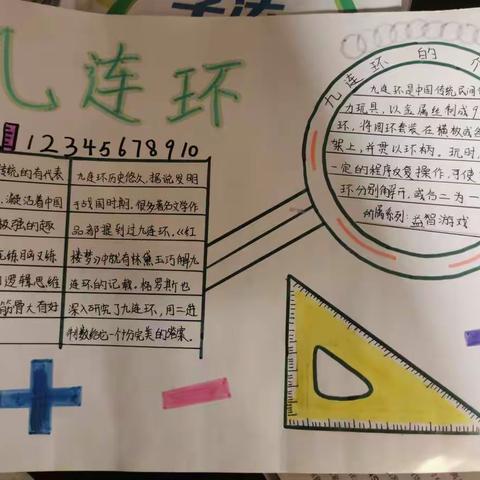 九连环
12345678910
传统的有代表
,凝沾着中国
极强的趣
练脑又练
逻辑思维
筋骨大有好
九连环历史悠久,据说发明
于战国时期,很多著名文学作
品都提到过九连环,《红
楼梦》中就有林黛玉巧解九
连环的记载。格罗斯也
深入研究了九连环,用二进
制数给它一个十分完美的答案。
九连环的
九连环是中国传统民间
力玩具,以金属丝制成9
环,将圆环套装在横板或各
架上,并贯以环柄。玩时,
一定的程序反复操作,可使
环分别解开,或合二为一
所属系列:益智游戏